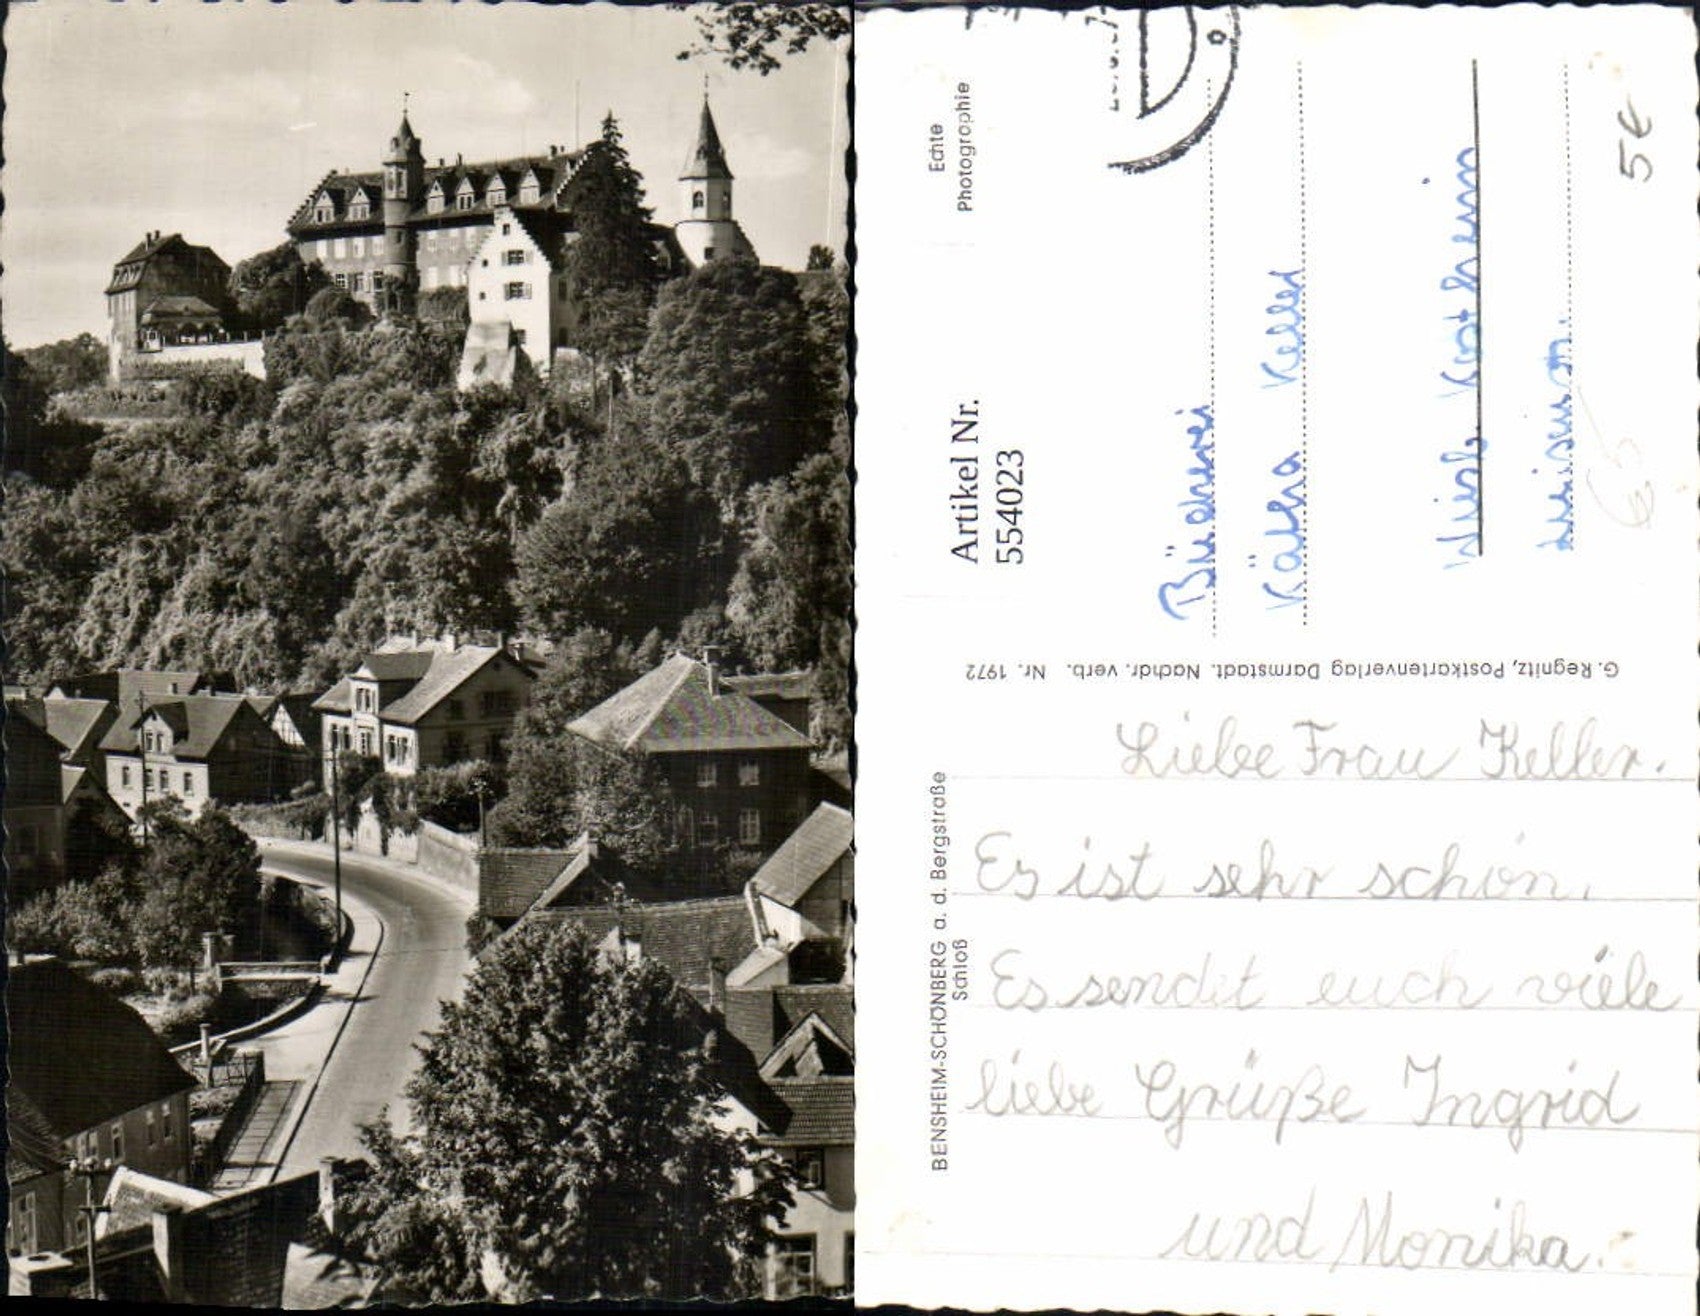 Echte
Photographie
Artikel Nr.
554023
Bücherei
Kätha Keller
Luisenstr.
5€
G. Regnitz, Postkartenverlag Darmstadt. Nachdr. verb. Nr. 1972
BENSHEIM-SCHÖNBERG a. d. Bergstraße
Schloß
Liebe Frau Keller.
Es ist sehr schön.
Es sendet euch viele
liebe Grüße Ingrid
und Monika.